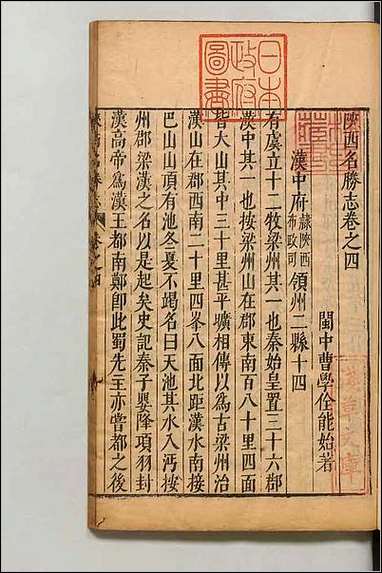 陝西名勝志卷之四
閩中曹學佺能始著
漢中府隸陝西布政司領州二縣十四
有虞立十二牧梁州其一也秦始皇置三十六郡
漢中其一也按梁州山在郡東南百八十里四面
皆大山其中三十里甚平曠相傳以為古梁州治
漢山在郡西南二十里四峯八面北距漢水南接
巴山山頂有池冬夏不竭名曰天池其水入沔按
州郡梁漢之名以是起矣史記秦子嬰降項羽封
漢高帝為漢王都南鄭即此蜀先主亦嘗都之後
日本政府圖書
淺草文庫